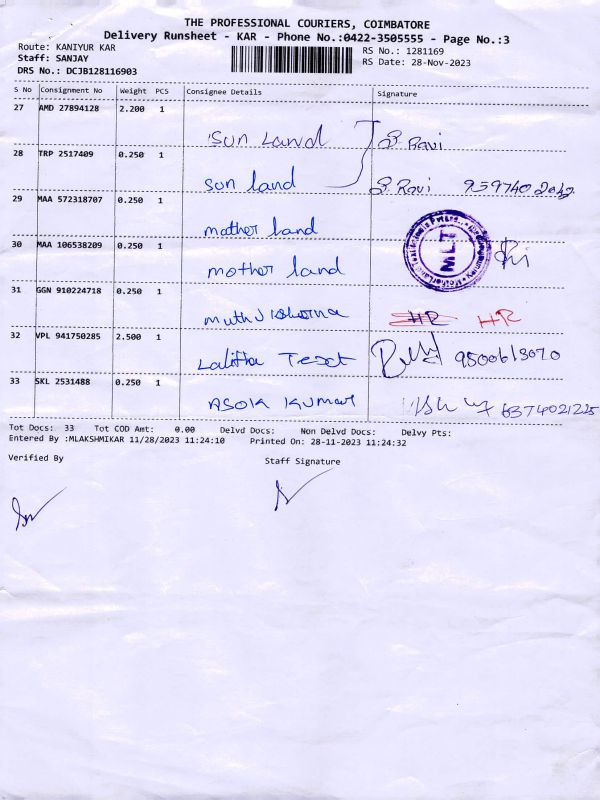 THE PROFESSIONAL COURIERS, COIMBATORE
Delivery Runsheet - KAR - Phone No.:0422-3505555 - Page No.:3
Route: KANIYUR KAR RS No.: 1281169
Staff: SANJAY RS Date: 28-Nov-2023
DRS No.: DCJB128116903
S No Consignment No Weight PCS Consignee Details Signature
27 AMD 27894128 2.200 1
Sun Land S Ravi
28 TRP 2517409 0.250 1
Sun land S. Ravi
29 MAA 572318707 0.250 1
mother land
30 MAA 106538209 0.250 1
mother land MLT
31 GGN 910224718 0.250 1
HR HR
32 VPL 941750285 2.500 1
Lalitha 9500613070
33 SKL 2531488 0.250 1
ASOK KUMAR 6374021225
Tot Docs: 33 Tot COD Amt: 0.00 Delvd Docs: Non Delvd Docs: Delvy Pts:
Entered By :MLAKSHMIKAR 11/28/2023 11:24:10 Printed On: 28-11-2023 11:24:32
Verified By Staff Signature